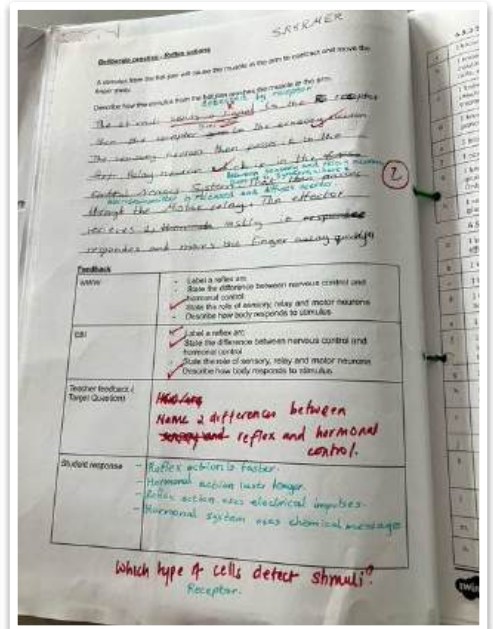 SRSRMER
Deliberate practice - Reflex actions
A stimulus from the hot pan will cause the muscle in the arm to contract and move the
finger away.
Describe how the stimulus from the hot pan reaches the muscle in the arm.
detected by receptor
The stimuli sends a signal to the receptor
then the receptor to the sensory neuron
The sensory neuron then passes it to the
relay neuron it is in the
Between sensory and relay neuron
central nervous System. then passes
neurotransmitter is released and diffuses across.
through the Motor relay. The effector
recieves it lastly it
respondes and moves the finger away quickly
2
Feedback
WWW
- Label a reflex arc
- State the difference between nervous control and
hormonal control
State the role of sensory, relay and motor neurons
- Describe how body responds to stimulus
EBI
Label a reflex arc
State the difference between nervous control and
hormonal control
- State the role of sensory, relay and motor neurons
Describe how body responds to stimulus
Teacher feedback /
Target Question
Name 2 differences between
reflex and hormonal
control.
Student response
- Reflex action is faster.
- Hormonal action laster longer.
- Reflex action uses electrical impulses.
- Hormonal system uses chemical messages
Which type of cells detect stimuli?
Receptor.